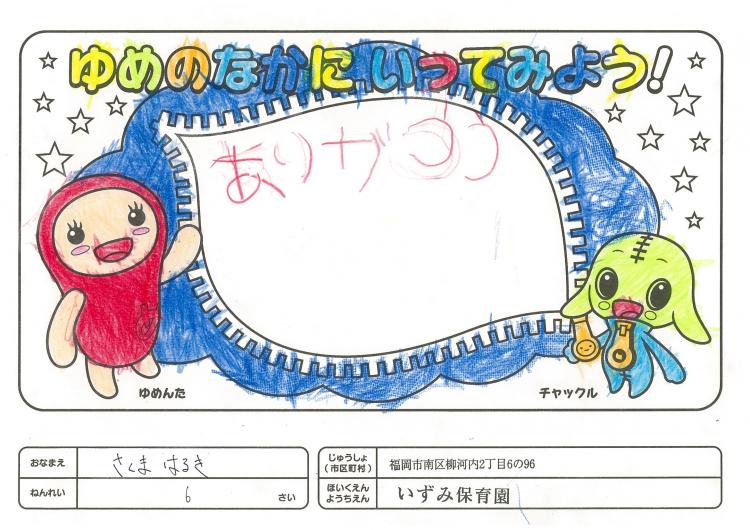 ゆめのなかに いってみよう!
ありがとう
ゆめんた
チャックル
おなまえ さくま はるき
ねんれい 6 さい
じゅうしょ(市区町村) 福岡市南区柳河内2丁目6の96
ほいくえん ようちえん いずみ保育園